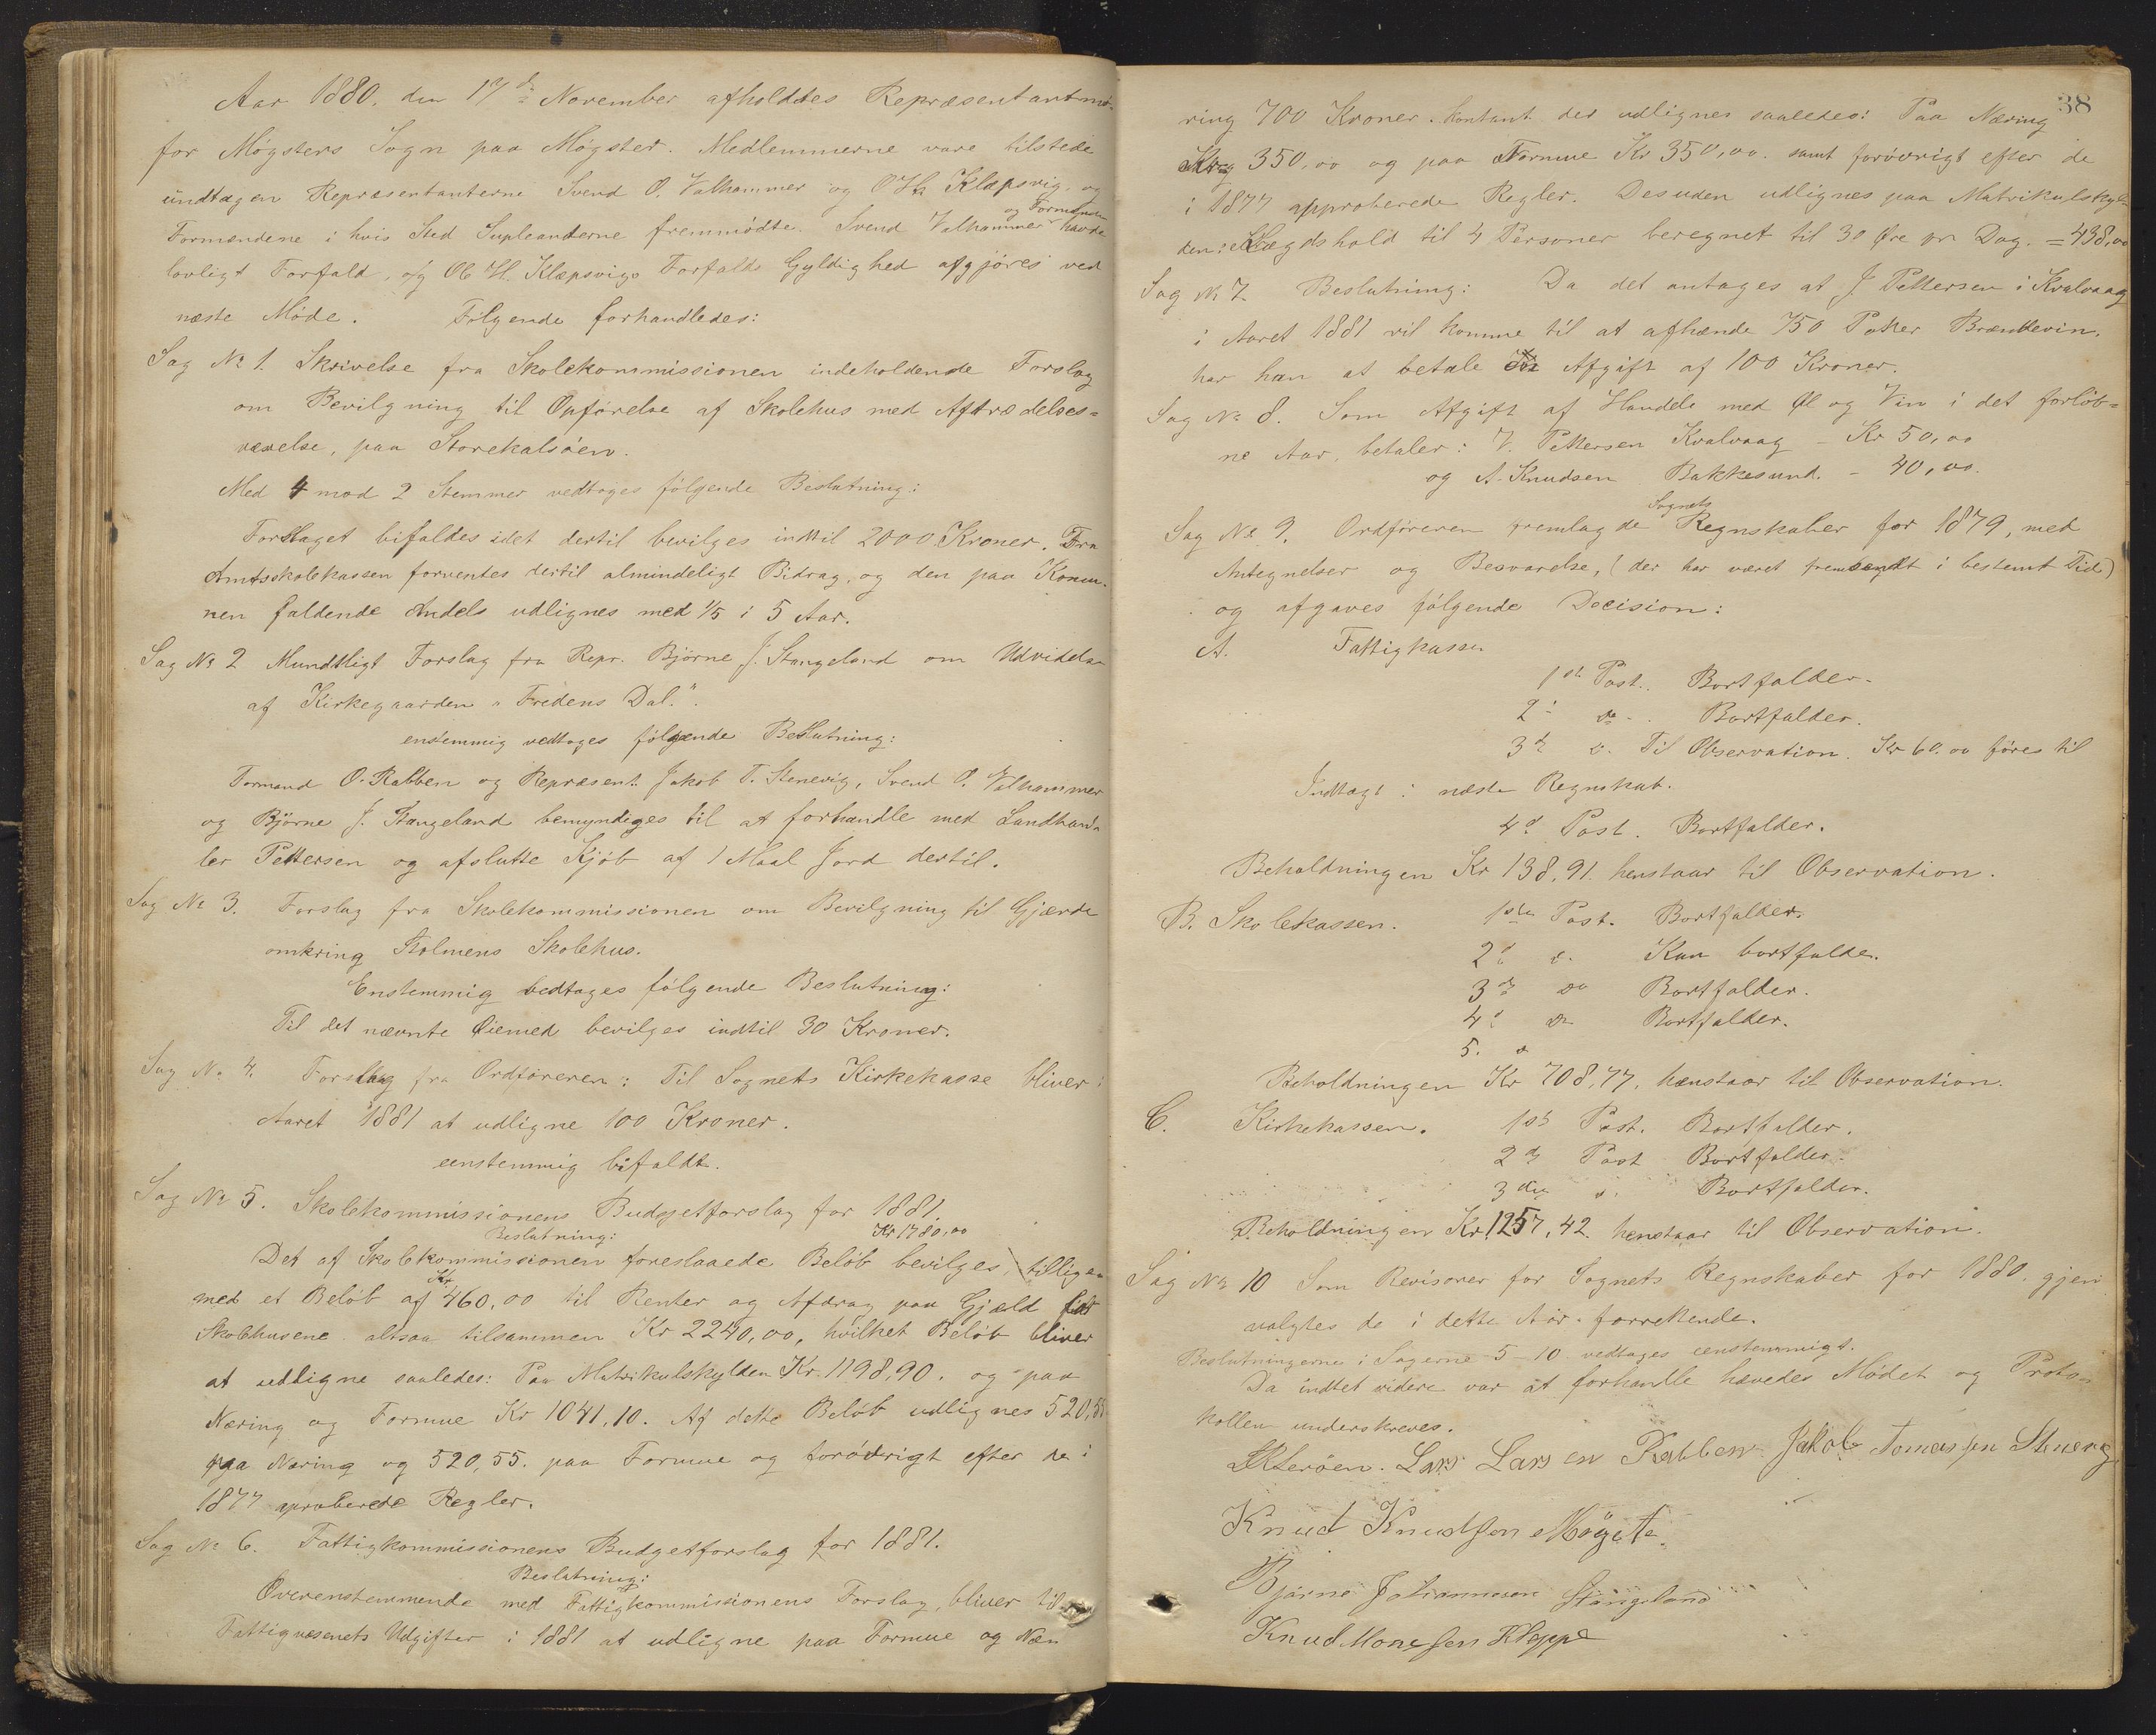 Aar 1880, den 17de November afholdtes Repræsentantmø-
for Møgsters Sogn paa Møgster. Medlemmerne vare tilstede
undtagen Repræsentanterne Svend O. Valhammer og O H. Klæpsvig, og
og Formanden
Formændene i hvis Sted Supleanterne fremmødte. Svend Valhammer havde
lovligt Forfald, og Ole H. Klæpsvigs Forfalds Gyldighed afgjøres ved
næste Møde. Følgende forhandledes:
Sag No 1. Skrivelse fra Skolekommissionen indeholdende Forslag
om Bevilgning til Opførelse af Skolehus med Aftrædelses-
værelse, paa Storekalsøen.
Med 4 mod 2 Stemmer vedtoges følgende Beslutning:
Forslaget bifaldes idet dertil bevilges indtil 2000 Kroner. Fra
Amtsskolekassen forventes dertil almindeligt Bidrag, og den paa Komu-
nen faldende Andels udlignes med 1/5 i 5 Aar.
Sag No 2 Mundtligt Forslag fra Repr. Bjørne J. Stangeland om Udvidelse
af Kirkegaarden "Fredens Dal."
enstemmig vedtoges følgende Beslutning:
Formand O. Rabben og Repræsent. Jakob T. Stenevig, Svend O. Valhammer
og Bjørne J. Stangeland bemyndiges til at forhandle med Landhand-
ler Pettersen og afslutte Kjøb af 1 Maal Jord dertil.
Sag No 3. Forslag fra Skolekommissionen om Bevilgning til Gjærde
omkring Stolmens Skolehus.
Enstemmig vedtoges følgende Beslutning:
Til det nævnte Øiemed bevilges indtil 30 Kroner.
Sag No 4. Forslag fra Ordføreren: Til Sognets Kirkekasse bliver i
Aaret 1881 at udligne 100 Kroner.
eenstemmig bifaldt.
Sag No 5. Skolekommissionens Budgetforslag for 1881.
Beslutning: Kr 1780,00
Det af Skolekommissionen foreslaaede Beløb bevilges, tilligem
med et Beløb af Kr 460,00 til Renter og Afdrag paa Gjæld for
Skolehusene altsaa tilsammen Kr 2240,00, hvilket Beløb bliver
at udligne saaledes: Paa Matrikulskylden Kr. 1198,90. og paa
Næring og Formue Kr 1041,10. Af dette Beløb udlignes 520,55
paa Næring og 520,55. paa Formue og forøvrigt efter de i
1877 aproberede Regler.
Sag No 6. Fattigkommissionens Budgetforslag for 1881.
Beslutning:
Overenstemmende med Fattigkommissionens Forslag, bliver til
Fattigvæsenets Udgifter i 1881 at udligne paa Formue og Næ
38
ring 700 Kroner. kontant der udlignes saaledes: Paa Næring
Kr 350,00 og paa Formue Kr 350,00. samt forøvrigt efter de
i 1877 approberede Regler. Desuden udlignes paa Matrikulskyl-
den: Lægdshold til 4 Personer beregnet til 30 Øre pr Dag. = 438,00
Sag No 7. Beslutning: Da det antages at J. Pettersen i Kvalvaag
i Aaret 1881 vil komme til at afhænde 750 Potter Brændevin,
har han at betale Afgift af 100 Kroner.
Sag No 8. Som Afgift af Handels med Øl og Vin i det forløb-
ne Aar, betaler: J. Pettersen Kvalvaag - Kr 50,00
og A. Knudsen Bakkesund. - 40,00.
Sognets
Sag No 9. Ordføreren fremlagde Regnskaber for 1879, med
Antegnelser og Besvarelse, (der har været fremsendt i bestemt Tid)
og afgaves følgende Decision:
A. Fattigkassen
1ste Post. Bortfalder.
2 do. Bortfalder.
3de do. Til Observation. Kr 60.00 føres til
Indtægt i næste Regnskab.
4de Post. Bortfalder.
Beholdningen Kr 138,91. henstaar til Observation.
B. Skolekassen. 1ste Post. Bortfalder.
2d do. Kan bortfalde.
3de do Bortfalder.
4d do Bortfalder.
5. do
Beholdningen Kr 708,77, henstaar til Observation.
C. Kirkekassen. 1ste Post. Bortfalder.
2de Post Bortfalder.
3die do. Bortfalder.
Beholdningen Kr. 1257,42. henstaar til Observation.
Sag No 10 Som Revisorer for Sognets Regnskaber for 1880. gjen
valgtes de i dette Aar forrettende.
Beslutningerne i Sagerne 5-10 vedtoges eenstemmigt.
Da indtet videre var at forhandle hævedes Mødet og Proto-
kollen underskreves.
Lerøen. Lars Larsen Rabben Jakob Tomassen Stenevig
Knud Knudsen Møgste.
Bjørne Johannesen Stangeland
Knud Monssen Kleppe